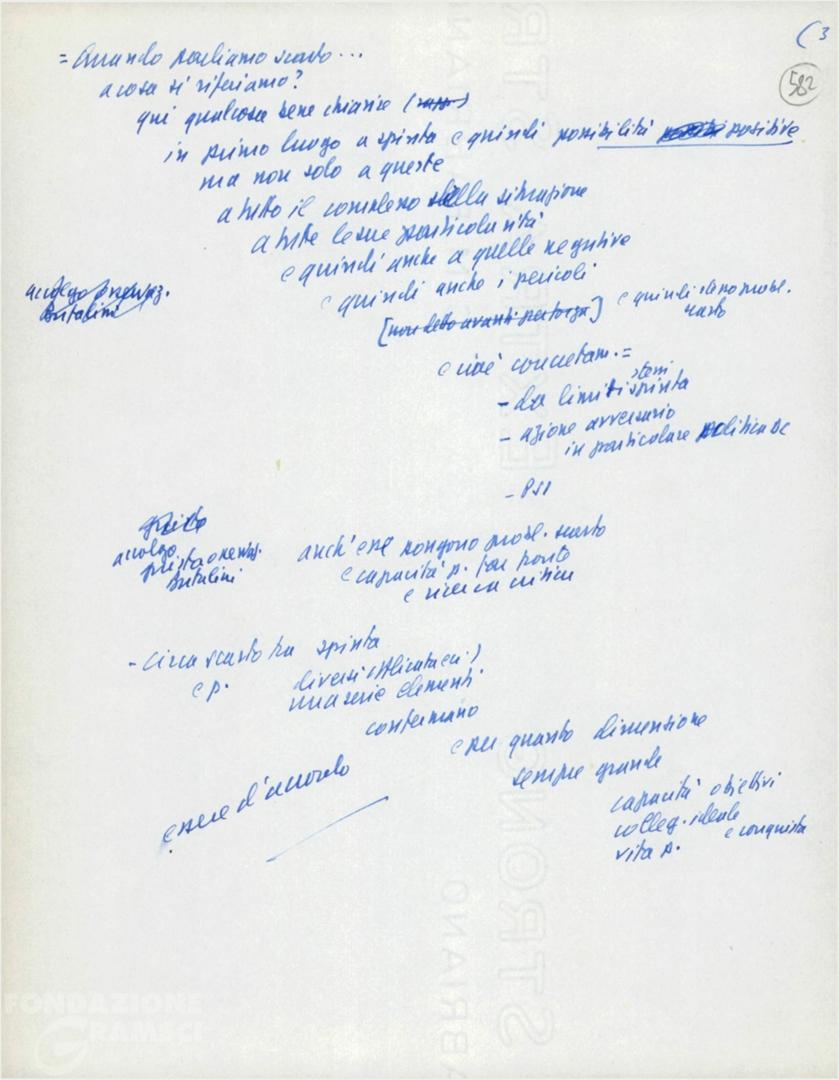 (3
582
= Quando parliamo scarto...
a cosa si riferiamo?
qui qualcosa bene chiarire
in primo luogo a spinta e quindi possibilità positive
ma non solo a queste
a tutto il complesso della situazione
a tutte le sue particolarità
e quindi anche a quelle negative
e quindi anche i pericoli
accolgo osservaz.
Bufalini
e quindi probl.
scarto
e cioè concretam. =
- da limiti stessi spinta
- azione avversario
in particolare politica DC
- PSI
accolgo
osservaz.
Bufalini
anch'esse pongono probl. scarto
e capacità p. far fronte
e ricerca critica
- circa scarto tra spinta
e p.
diversi
una serie elementi
confermano
essere d'accordo
e per quanto dimensione
sempre grande
capacità obiettivi
colleg. ideale
e conquista
vita p.
FONDAZIONE
GRAMSCI
FABRIANO
STRONG
EXTRA